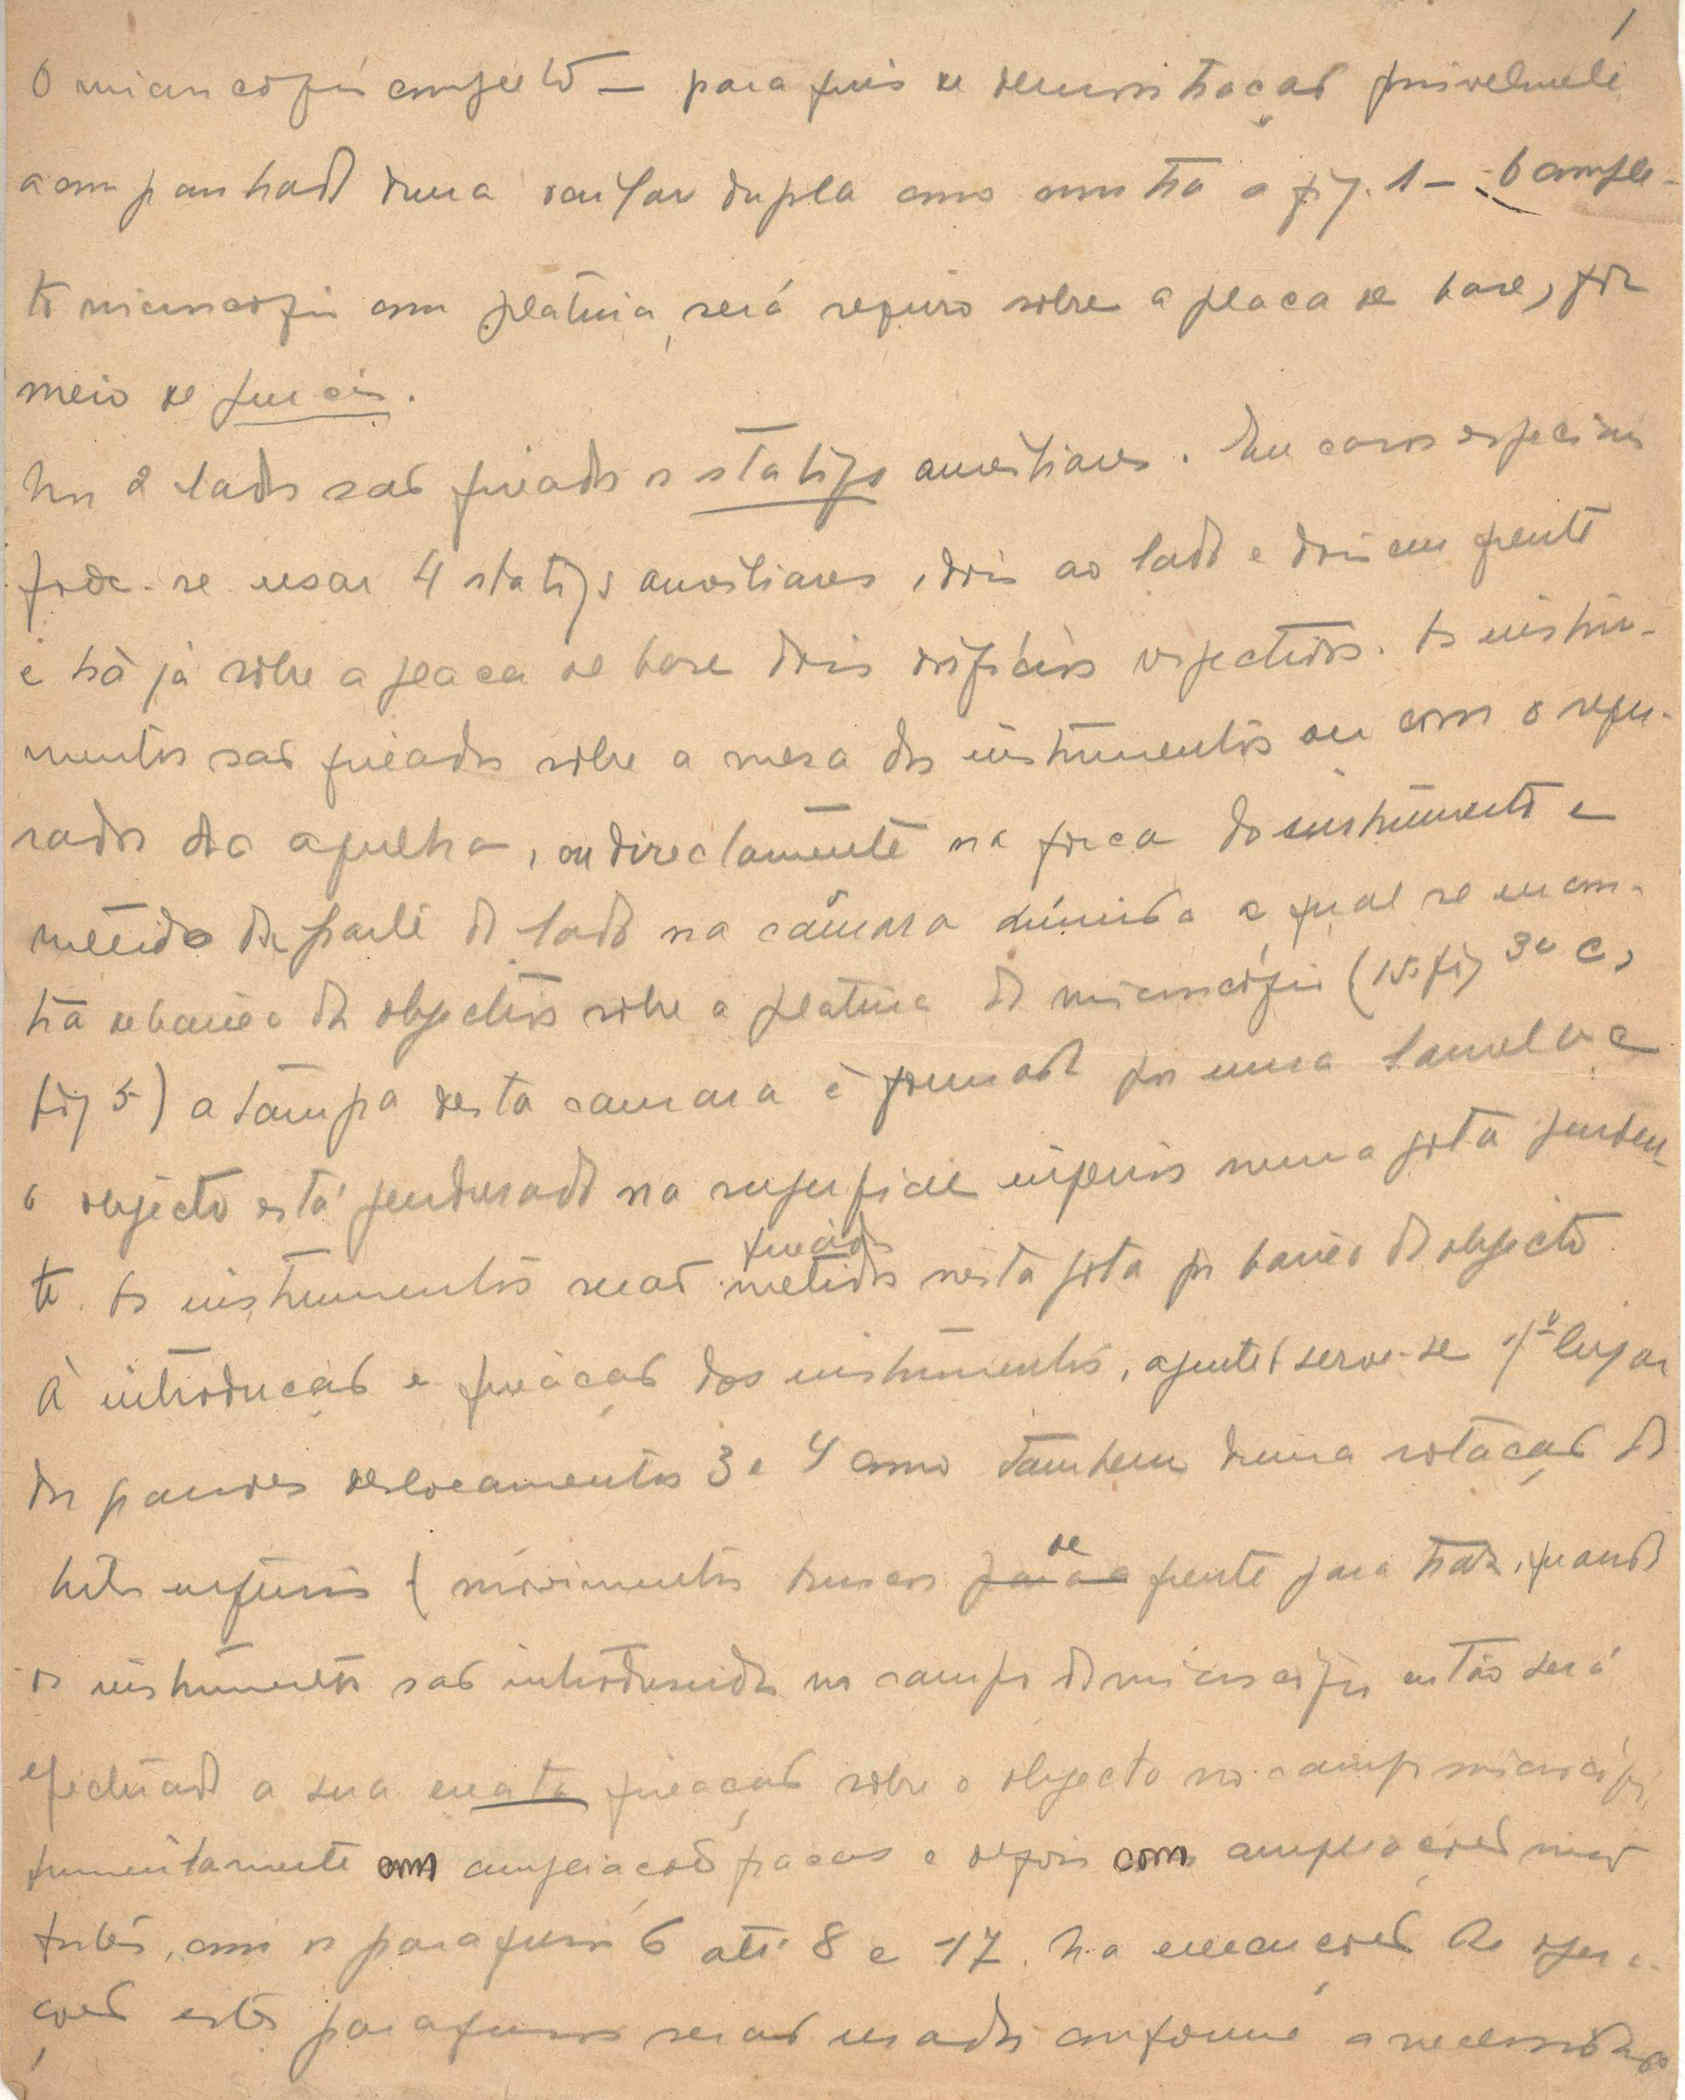 1
O microscópio completo — para fins de demonstração possivelmente
acompanhado duma ocular dupla como mostra a fig. 1 — O comple-
to microscópio com platina, será seguro sobre a placa de base, por
meio de
Nos 2 lados são fixados os stativs auxiliares. Em casos especiais
pode-se usar 4 stativs auxiliares, dois ao lado e dois em frente
e há já sobre a placa de base dois orifícios respectivos. Os instru-
mentos são fixados sobre a mesa dos instrumentos ou com o segu-
rador da agulha, ou directamente na forca do instrumento e
metido da parte do lado na câmara húmida a qual se encon-
tra debaixo da objectiva sobre a platina do microscópio (15 fig 3a e,
fig 5) a tampa desta camara é formada por uma lamela e
o objecto está pendurado na superficie inferior numa gota penden-
te. Os instrumentos serão metidos fixados nesta gota por baixo do objecto.
À introdução e fixação dos instrumentos, a gente serve-se 1º lugar
dos grandes deslocamentos 3 e 4 como tambem duma rotação do
(movimentos bruscos para a de frente para traz, quando
os instrumentos são introduzidos no campo do microscópio então será
efectuado a sua exata fixação sobre o objecto no campo microscópi
primeiramente com ampliações fracas e depois com ampliações mais
fortes, com os parafusos 6 até 8 e 17. Na execuções de opera-
ções estes parafusos serão usados conforme a necessidade